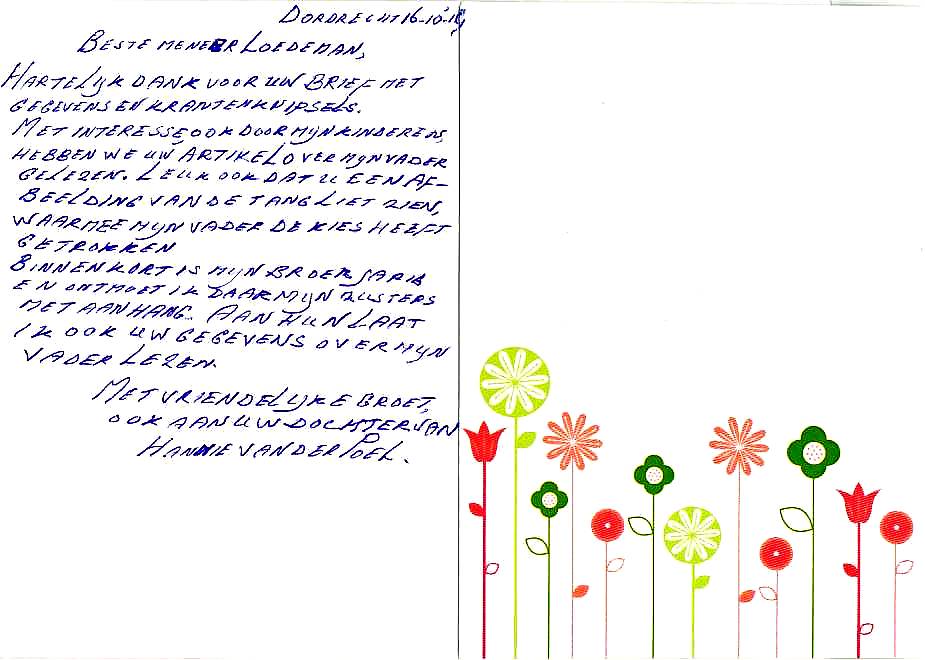 DORDRECHT 16-10-
BESTE MENEER LOEDEMAN,
HARTELIJK DANK VOOR UW BRIEF MET
GEGEVENS EN KRANTENKNIPSELS.
MET INTERESSE, OOK DOOR MIJN KINDEREN,
HEBBEN WE UW ARTIKEL OVER MIJN VADER
GELEZEN. LEUK OOK DAT U EEN AF-
BEELDING VAN DE TANG LIET ZIEN,
WAARMEE MIJN VADER DE KIES HEEFT
GETROKKEN
BINNENKORT IS MIJN BROER JARIG
EN ONTMOET IK DAAR MIJN ZUSTERS
MET AANHANG. AAN HUN LAAT
IK OOK UW GEGEVENS OVER MIJN
VADER LEZEN.
MET VRIENDELIJKE GROET,
OOK AAN UW DOCHTER VAN
HANNIE VAN DER POEL.